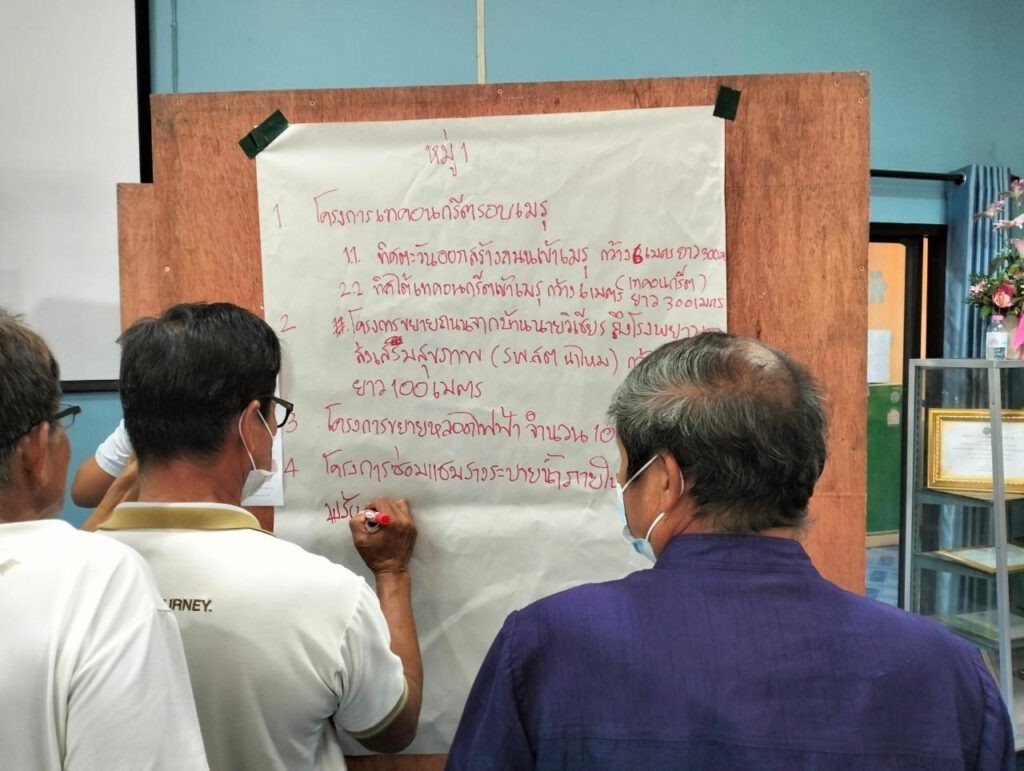 หมู่ 1
1 โครงการเทคอนกรีตรอบเมรุ
1.1. ทิศตะวันออกสร้างถนนเข้าเมรุ กว้าง 6 เมตร ยาว 300
2.2 ทิศใต้เทคอนกรีตเข้าเมรุ กว้าง 6 เมตร (เทคอนกรีต) ยาว 300 เมตร
2 #.โครงการขยายถนนจากบ้านนายวิเชียร ถึงโรงพยาบา
ส่งเสริมสุขภาพ (รพ.สต นาโหม)
ยาว 100 เมตร
3 โครงการขยายหลอดไฟฟ้า จำนวน 10
4 โครงการซ่อมแซมรางระบายน้ำภายใ
URNEY.